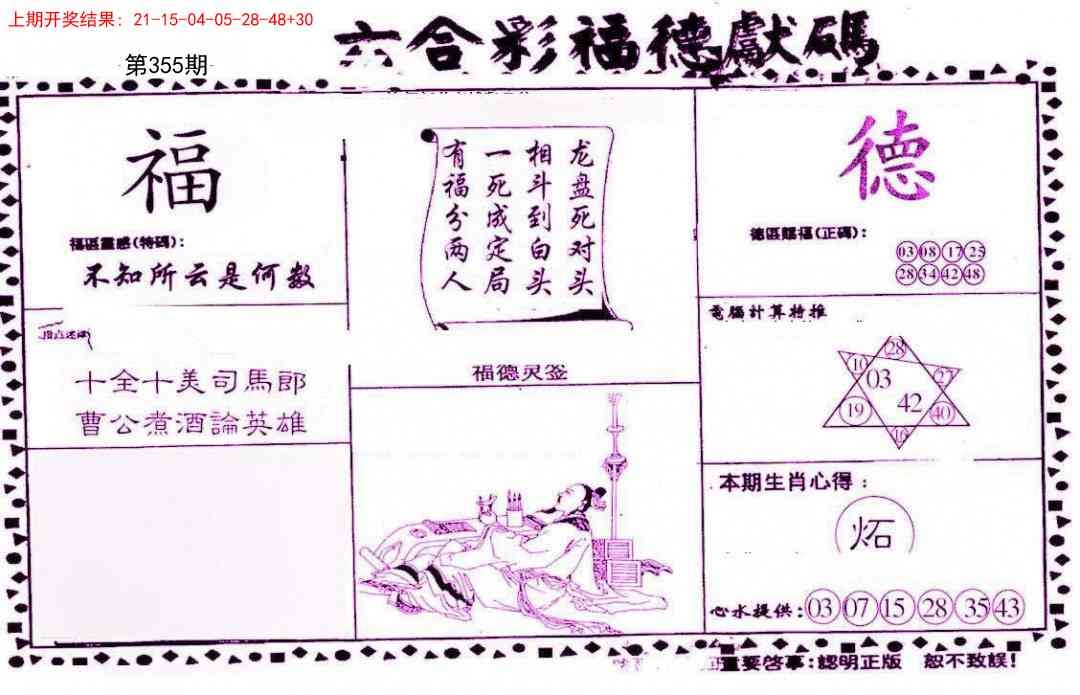 上期开奖结果：21-15-04-05-28-48+30
六合彩福德獻碼
第355期
福
福區靈感(特碼)：
不知所云是何数
十全十美司馬郎
曹公煮酒論英雄
龙盘死对头
相斗到白头
一死成定局
有福分两人
福德灵签
德
德區賜福(正碼)：
03 08 17 25
28 34 42 48
電腦計算特推
28
10 03 27
19 42 40
16
本期生肖心得：
炻
心水提供：03 07 15 28 35 43
重要启事：認明正版 恕不致誤！